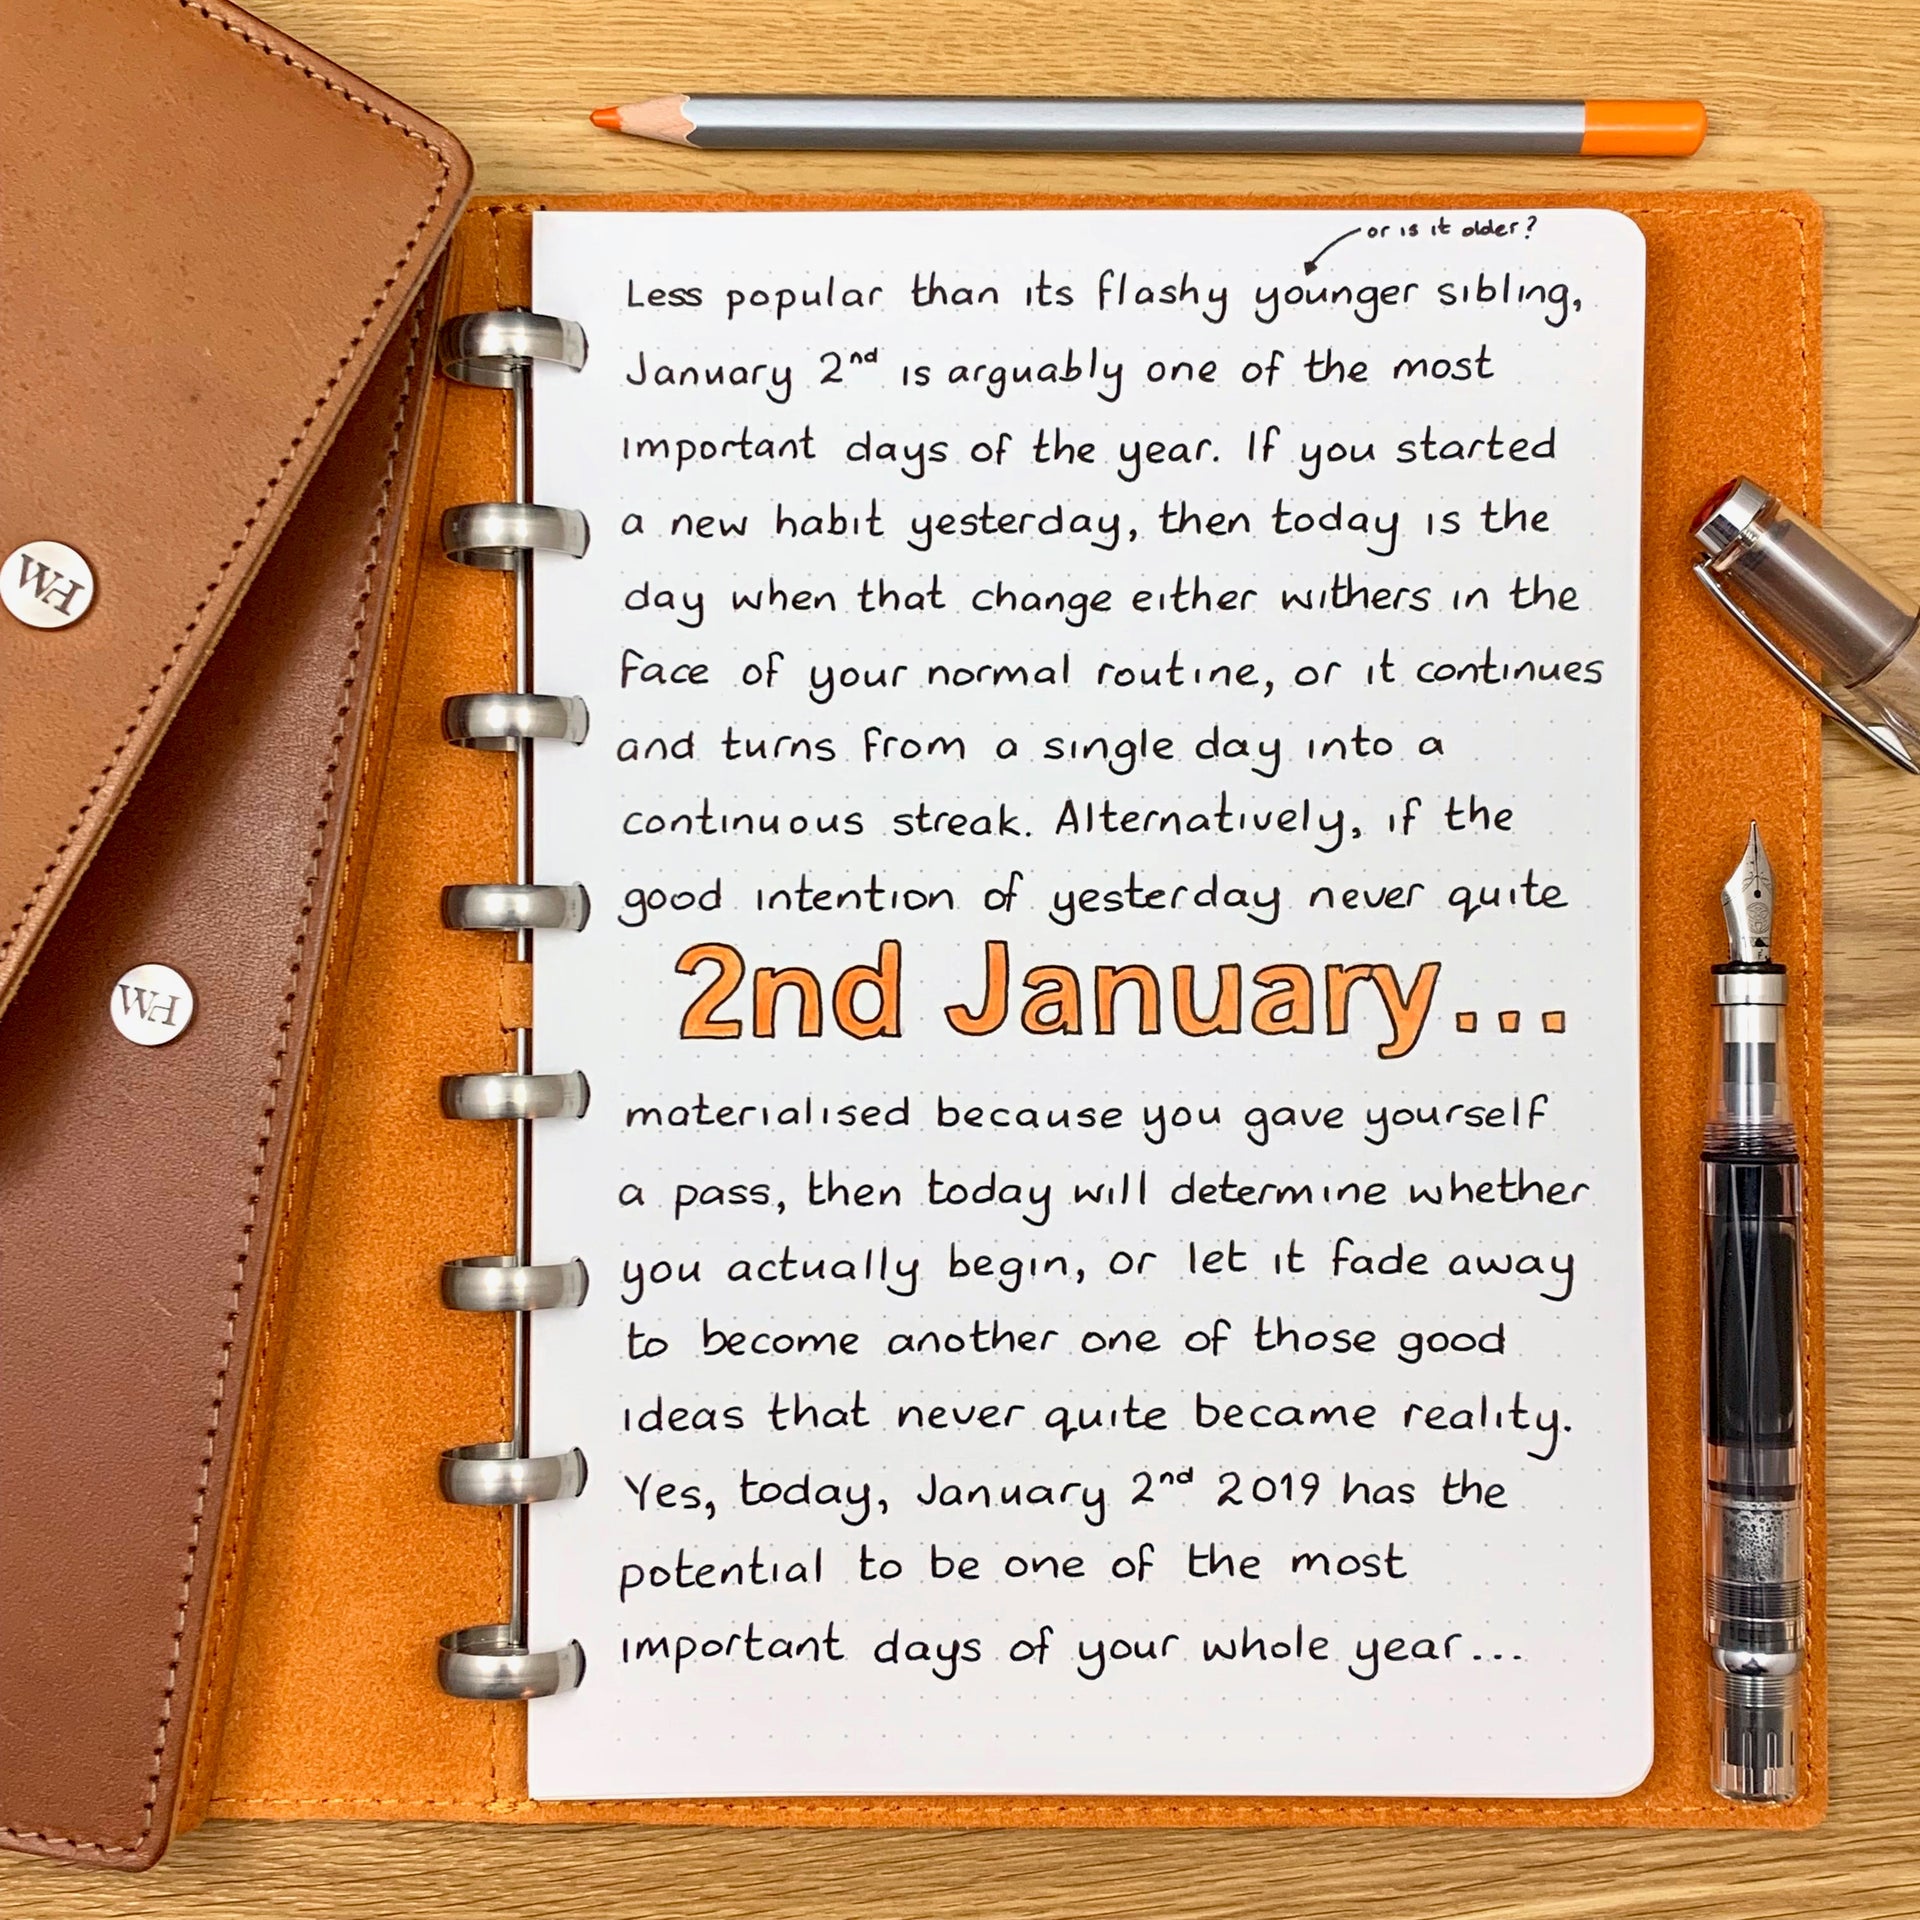 WH
WH
or is it older?
Less popular than its flashy younger sibling,
January 2nd is arguably one of the most
important days of the year. If you started
a new habit yesterday, then today is the
day when that change either withers in the
face of your normal routine, or it continues
and turns from a single day into a
continuous streak. Alternatively, if the
good intention of yesterday never quite
2nd January...
materialised because you gave yourself
a pass, then today will determine whether
you actually begin, or let it fade away
to become another one of those good
ideas that never quite became reality.
Yes, today, January 2nd 2019 has the
potential to be one of the most
important days of your whole year...